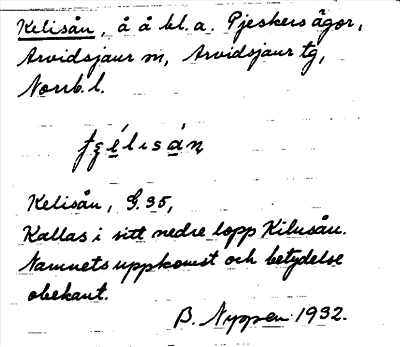 Kelisån, å å bl.a. Pjeskers ägor,
Arvidsjaur m, Arvidsjaur tg,
Norrb. l.
Kelisån, G. 35,
Kallas i sitt nedre lopp Kilusån.
Namnets uppkomst och betydelse
obekant.
B. Nyppen 1932.